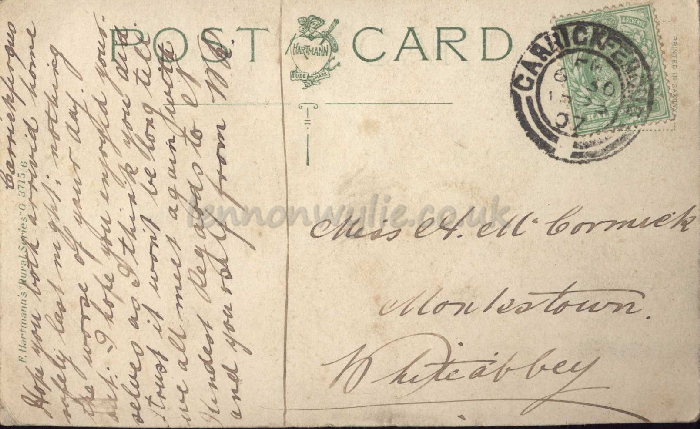 POST CARD
HARTMANN
PRINTED IN
CARRICKFERGUS
07
Miss A. McCormick
Monkstown.
Whiteabbey
Carrickfergus
Hope you both arrivid home
safely last night; nothing
the worse of your day
out. I hope you enjoyed your-
selves as I think you did.
trust it wont be long till
we all meet again, with
Kindest Regards to
and you only from
F. Hartmann's Rural Series G 3715.6
lennonwylie.co.uk